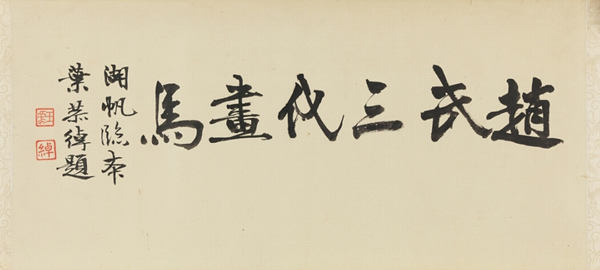 趙氏三代畫馬
湖帆臨本
葉恭綽題
綽